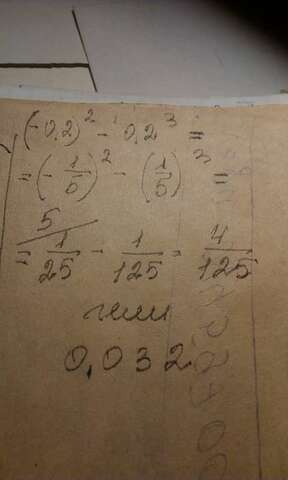 (-0,2)² - 0,2³ =
= (-1/5)² - (1/5)³ =
= 5/ 1/25 - 1/125 = 4/125
или
0,032